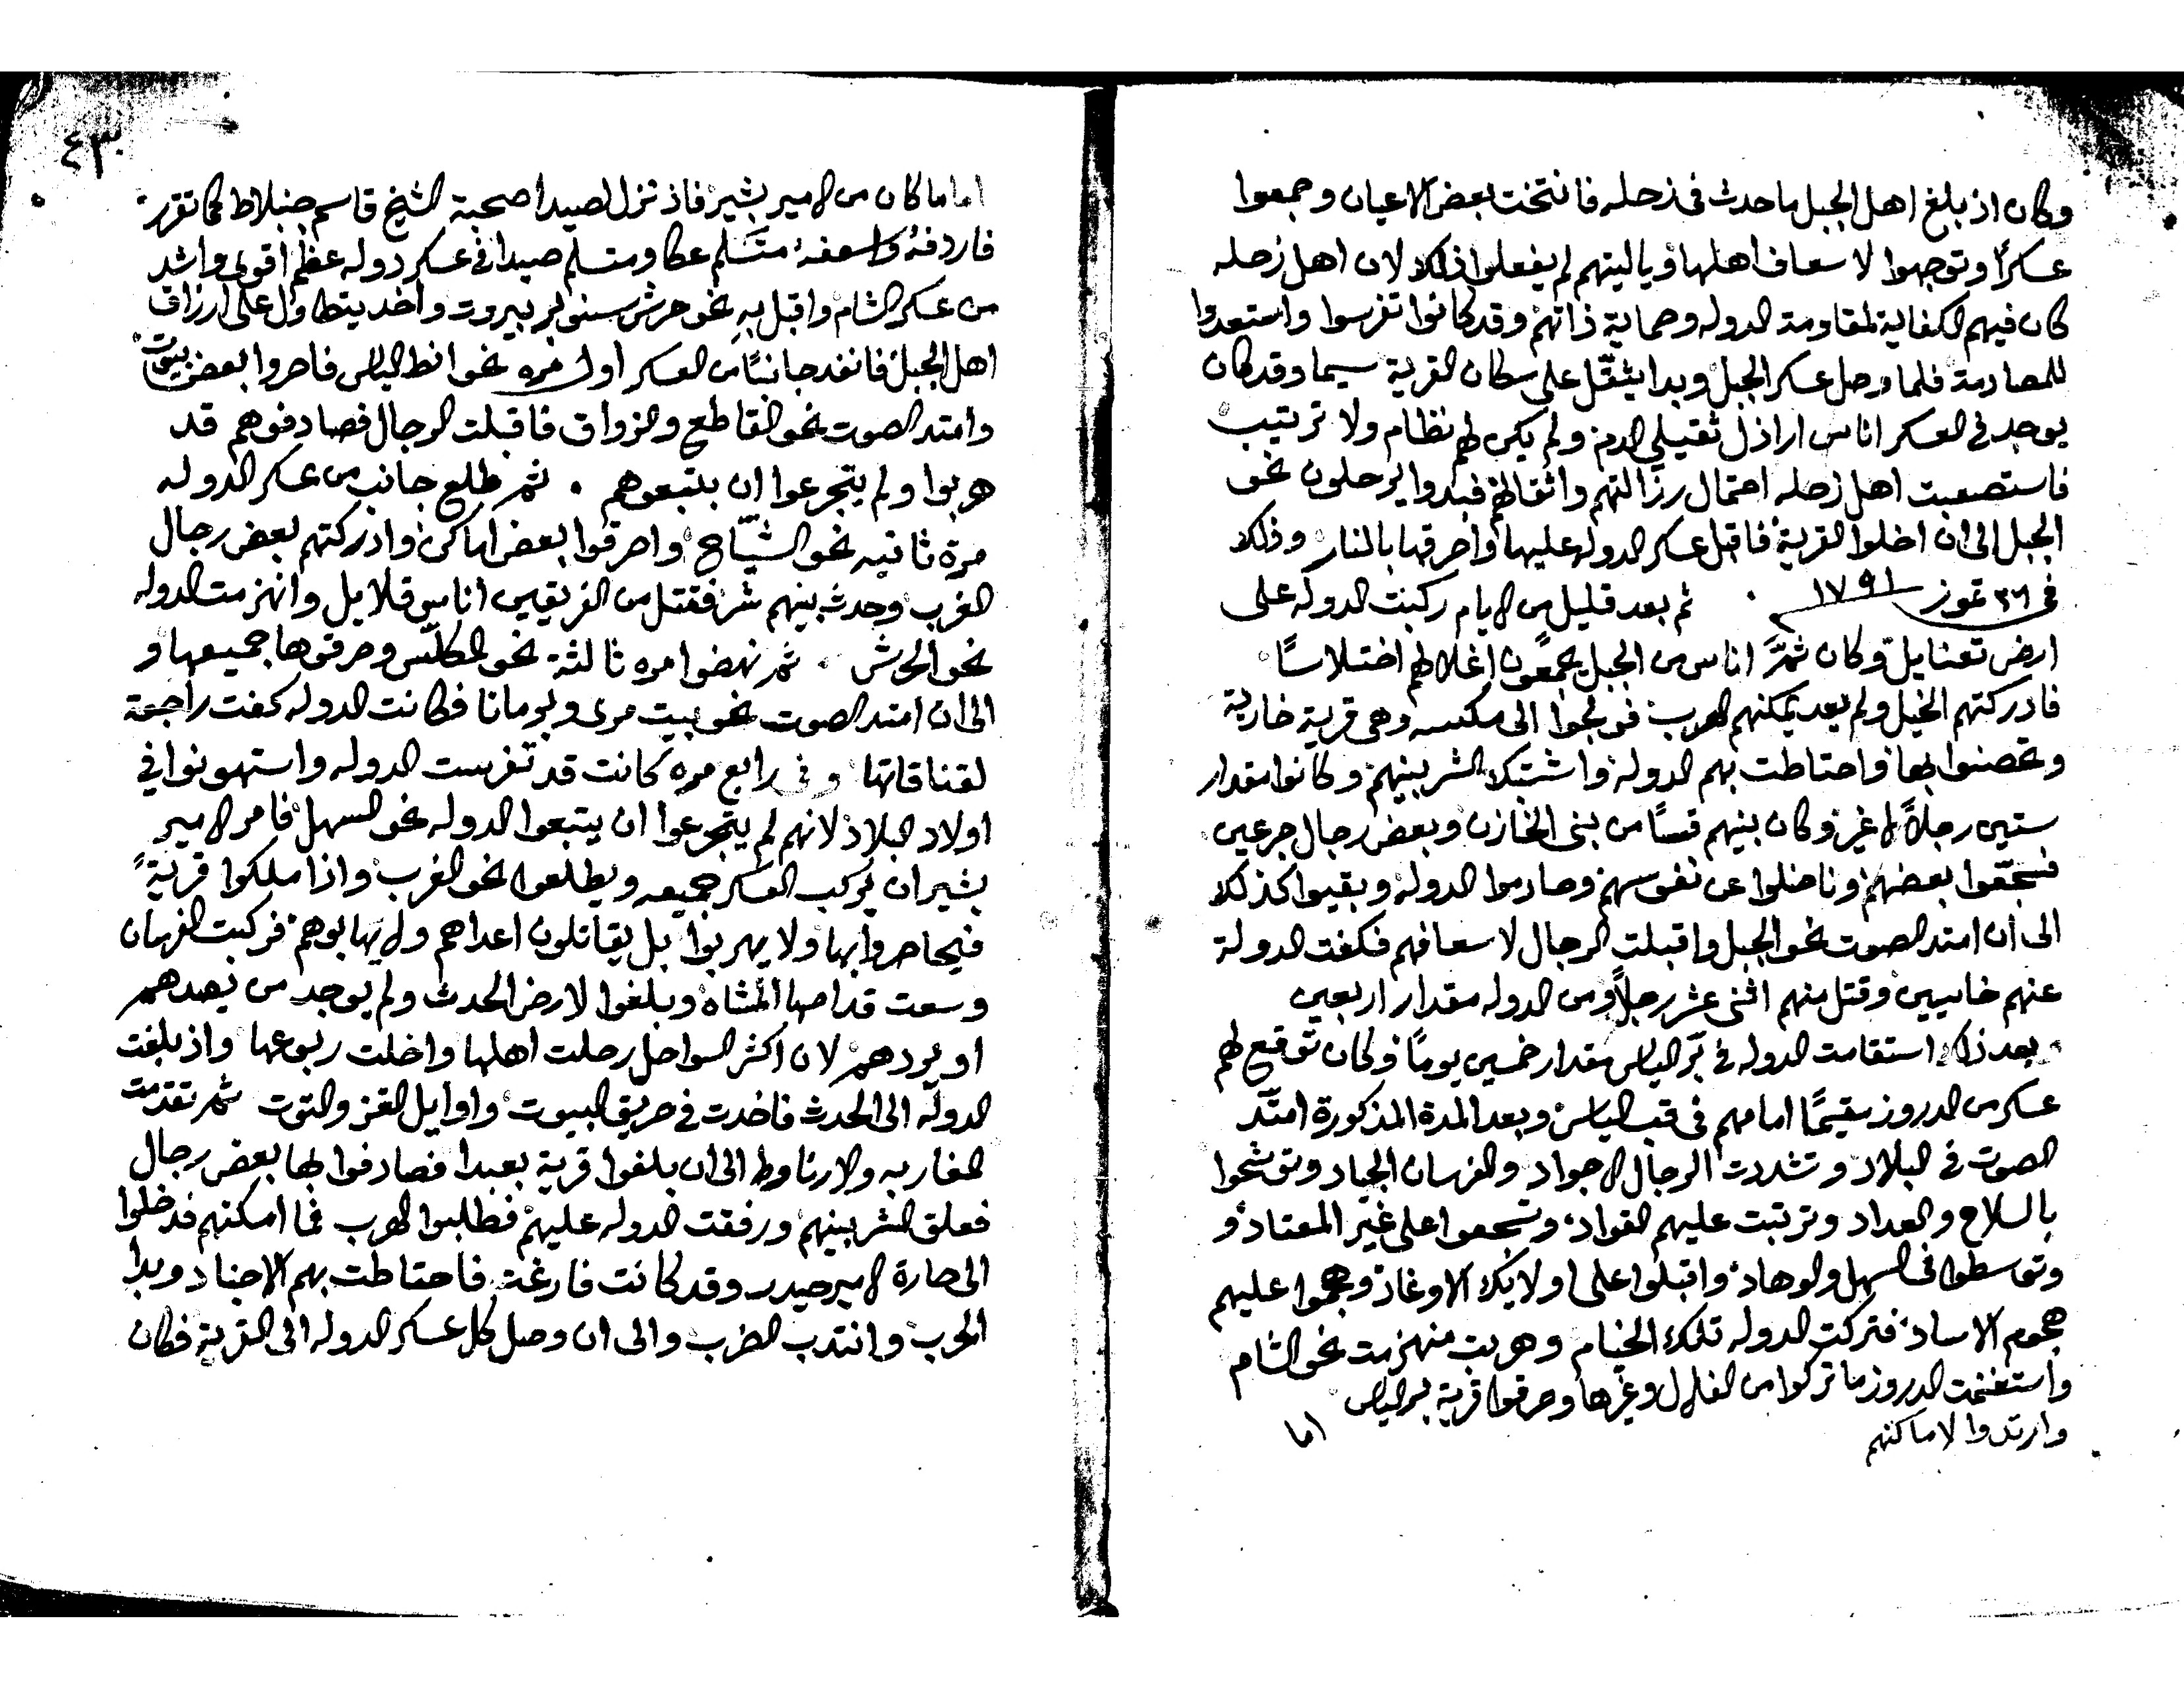 وكان اذ بلغ اهل الجبل ما حدث في زحله فانتخت بعض الاعيان وجمعوا
عسكرًا وتوجهوا لاسعاف اهلها وياليتهم لم يفعلوا ذلك لان اهل زحله
كان فيهم الكفاية لمقاومة الدوله وحماية ذاتهم وقد كانوا تفرسوا واستعدوا
للمصادمة فلما وصل عسكر الجبل وبدا يثقّل على سكان القرية سيما وقد كان
يوجد في العسكر اناس اراذل ثقيلي الدم ولم يكن لهم نظام ولا ترتيب
فاستصعبت اهل زحله احتمال رزالتهم واثقالهم فبدوا يرحلون نحو
الجبل الى ان اخلوا القرية فاقبل عسكر الدوله عليها واحرقها بالنار وذلك
في ٢٦ تموز ١٧٩١ ثم بعد قليل من الايام ركبت الدوله على
ارض تعنايل وكان ثمَّ اناس من الجبل يجمعون اغلالهم اختلاسًا
فادركتهم الخيل ولم يعد يمكنهم الهرب فولجوا الى مكسه وهي قرية خاربة
وتحصنوا بها واحتاطت بهم الدولة واشتبك الشر بينهم وكانوا مقدار
ستين رجلاً لا غير وكان بينهم قسًا من بني الخازن وبعض رجال جرعين
فشجّعوا بعضهم وناضلوا عن نفوسهم وصادموا الدولة وبقيوا كذلك
الى ان امتد الصوت نحو الجبل واقبلت الرجال لاسعافهم فكفت الدولة
عنهم خايبين وقتل منهم اثني عشر رجلاً ومن الدوله مقدار اربعين
بعد ذلك استقامت الدوله في بّر الياس مقدار خمسين يومًا وكان توقع لهم
عسكر من الدروز مقيمًا امامهم في قب الياس وبعد المدة المذكورة امتّد
الصوت في البلاد وتشددت الرجال الاجواد والفرسان الجياد وتوشحوا
بالسلاح والعداد وترتبت عليهم القواد وتجمعوا على غير المعتاد و
وتوسطوا في السهل والوهاد واقبلوا على اولايك الاوغاد وهجموا عليهم
هجوم الاساد فتركت الدوله تلك الخيام وهربت منهزمت نحو الشام
واستغنمت الدروز ما تركوا من الغلال وغيرها وحرقوا قرية بر الياس
وارتدوا لاماكنهم اما
٤٣
اما ما كان من الامير بشير فاذ نزل لصيدا صحبة الشيخ قاسم جنبلاط كما تقرر
فاردفهُ واسعفهُ متسلم عكا ومتسلم صيدا في عسكر دوله عظم اقوى واشد
من عسكر الشام واقبل بهِ نحو حرش سنوبر بيروت واخد يتطاول على ارزاق
اهل الجبل فانفد جانبًا من العسكر اول مره نحو انطلياس فاحرقوا بعض بيوت
وامتد الصوت نحو القاطع والزواق فاقبلت الرجال فصادفوهم قد
هربوا ولم يتجرعوا ان يتبعوهم . ثم طلع جانب من عسكر الدوله
مرة ثانيه نحو الشيّاح واحرقوا بعض اماكن وادركتهم بعض رجال
الغرب وحدث بينهم شر فقتل من الفريقين اناس قلايل وانهزمت الدوله
نحو الحرش . ثم نهضوا مره ثالثة نحو المكلّس وحرقوها جميعها و
الى ان امتد الصوت نحو بيت مري وبرمانا فكانت الدوله كفت راجعة
لقناقاتها وفي رابع مره كانت قد تفرست الدوله واستهونوا في
اولاد البلاد لانهم لم يتجرعوا ان يتبعوا الدوله نحو السهل فامر الامير
بشير ان يركب العسكر جميعه ويطلعوا نحو الغرب واذا ملكوا قريةً
فيحاصروا بها ولا يهربوا بل يقاتلون اعداهم ولا يهابوهم فركبت الفرسان
وسعت قدامها المشاه وبلغوا لارض الحدث ولم يوجد من يصدهم
او يردهم لان اكثر السواحل رحلت اهلها واخلت ربوعها واذ بلغت
الدوله الى الحدث فاخدت في حريق البيوت واوايل القز والتوت ثم تقدمت
المغاربه والارناوط الى ان بلغوا قرية بعبدا فصادفوا بها بعض رجال
فعلق الشر بينهم ورفقت الدوله عليهم فطلبوا الهرب فما امكنهم فدخلوا
الى حارة الامير حيدر وقد كانت فارغة فاحتاطت بهم الاجناد وبدا
الحرب وانتدب الضرب والى ان وصل كل عسكر الدوله الى القرية فكان